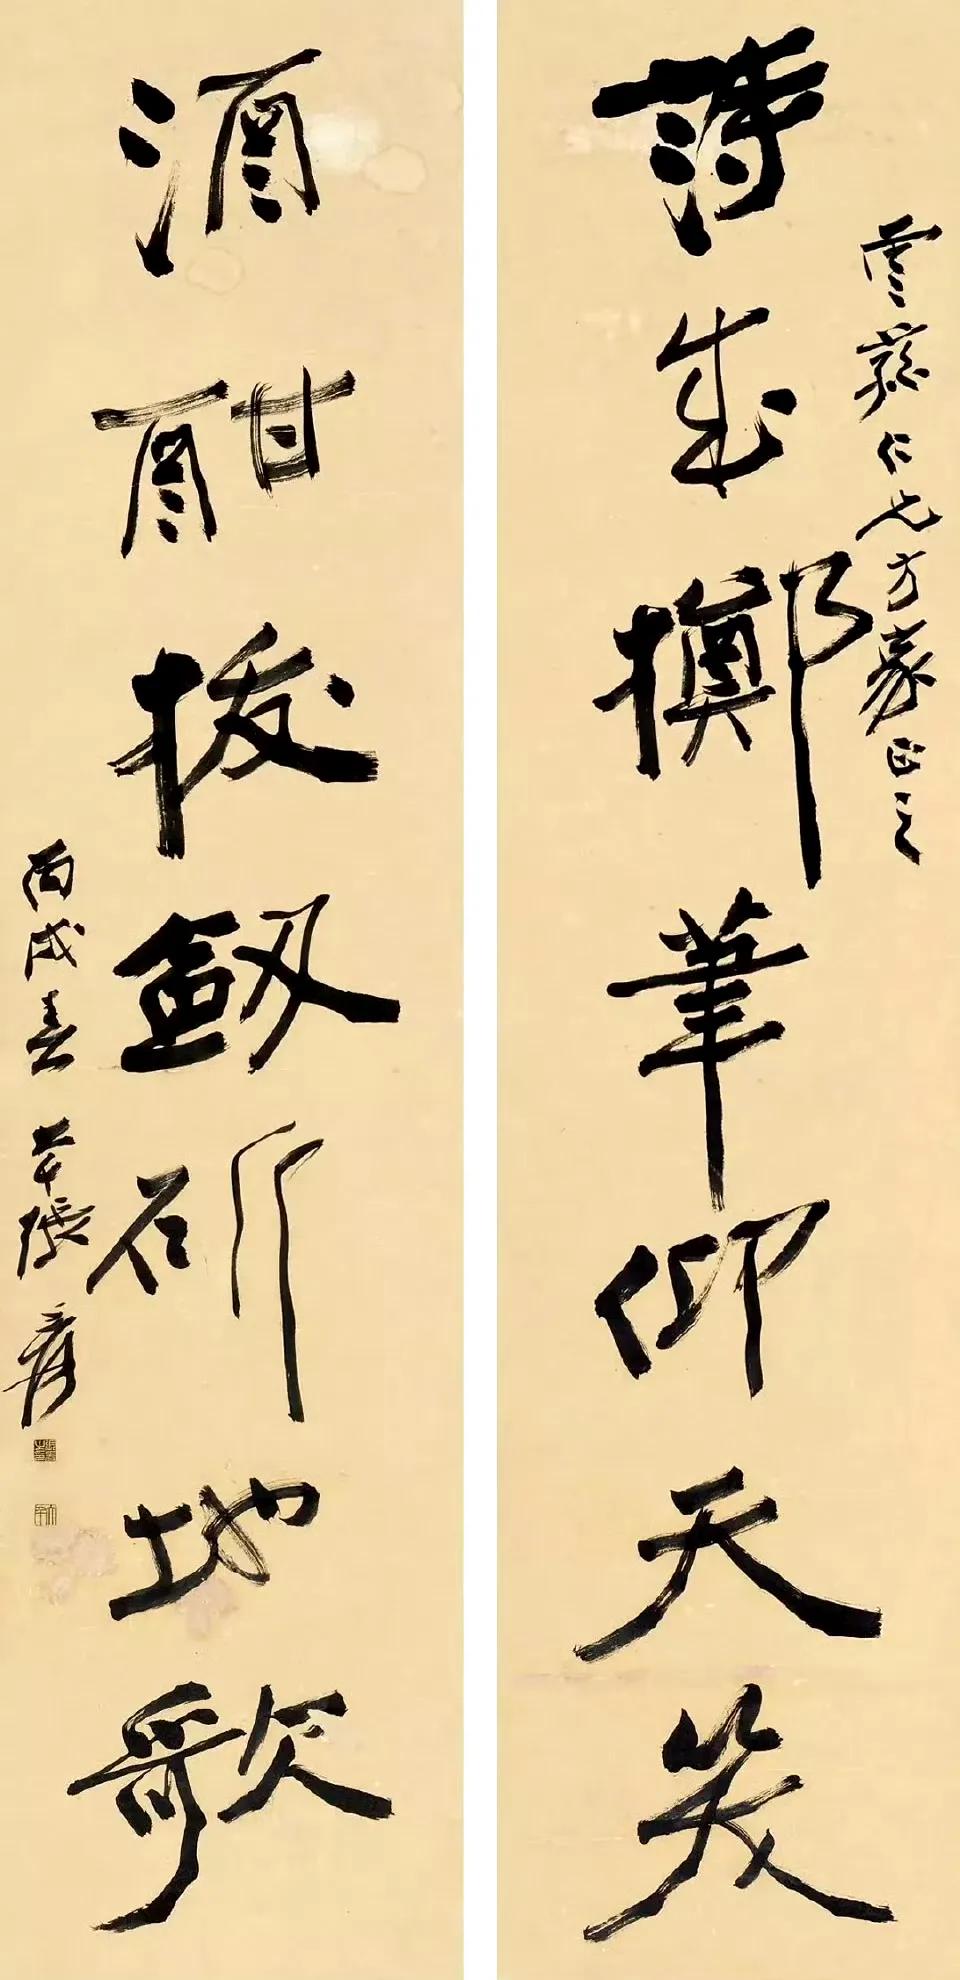 雲 仁兄方家正之
詩成擲筆仰天笑
酒酣拔劍斫地歌
丙戌春 大千張爰